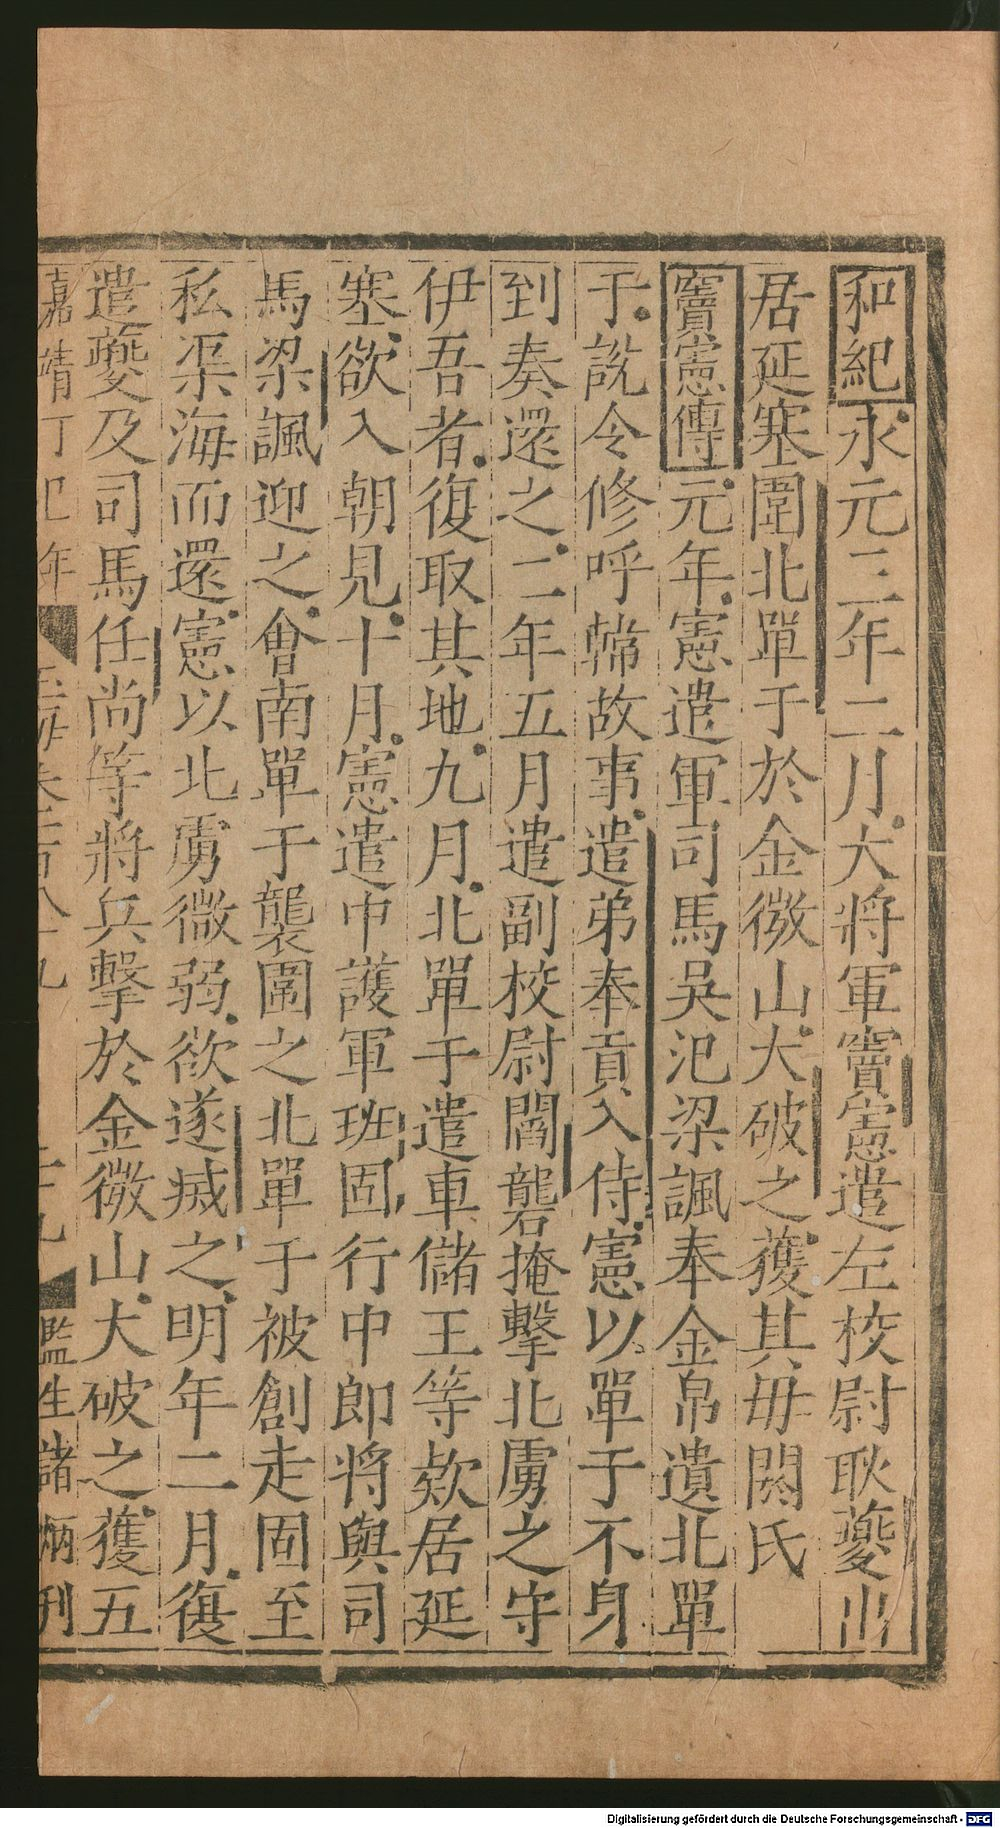 和紀永元三年二月大將軍竇憲遣左校尉耿夔出
居延塞圍北單于於金微山大破之獲其毋閼氏
竇憲傳元年憲遣軍司馬吳汜梁諷奉金帛遺北單
于說令修呼韓故事遣弟奉貢入侍憲以單于不身
到奏還之二年五月遣副校尉閻礱掩擊北虜之守
伊吾者復取其地九月北單于遣車儲王等欵居延
塞欲入朝見十月憲遣中護軍班固行中郎將與司
馬梁諷迎之會南單于襲圍之北單于被創走固至
私渠海而還憲以北虜微弱欲遂滅之明年二月復
遣夔及司馬任尚等將兵擊於金微山大破之獲五
嘉靖丁巳年 玉海卷百八十九 二十九 監生諸炳刊
Digitalisierung gefördert durch die Deutsche Forschungsgemeinschaft - DFG